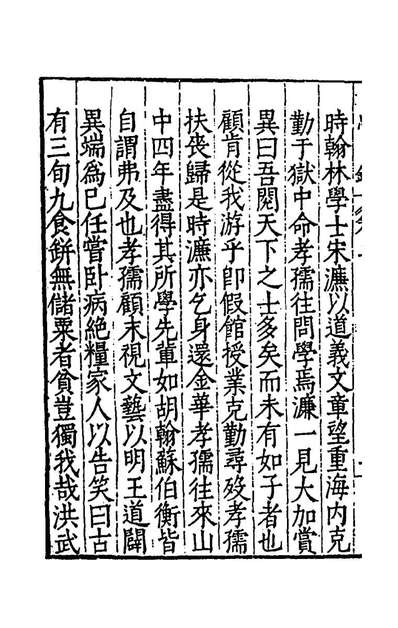 時翰林學士宋濂以道義文章望重海内克
勤于獄中命孝孺往問學焉濂一見大加賞
異曰吾閱天下之士多矣而未有如子者也
顧肯從我游乎卽假館授業克勤尋歿孝孺
扶喪歸是時濂亦乞身還金華孝孺往來山
中四年盡得其所學先輩如胡翰蘇伯衡皆
自謂弗及也孝孺顧末視文藝以明王道闢
異端為巳任嘗卧病絶糧家人以告笑曰古
有三旬九食缾無儲粟者貧豈獨我哉洪武